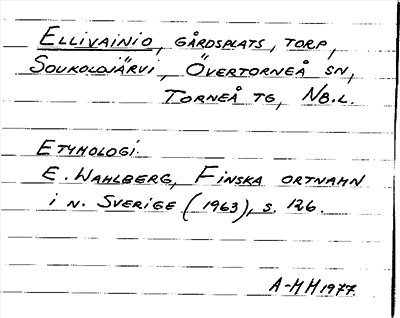 ELLIVAINIO, GÅRDSPLATS, TORP,
SOUKOLOJÄRVI, ÖVERTORNEÅ SN,
TORNEÅ TG, NB.L.
ETYMOLOGI.
E. WAHLBERG, FINSKA ORTNAMN
i N. SVERIGE (1963), S. 126.
A-MH 1977.